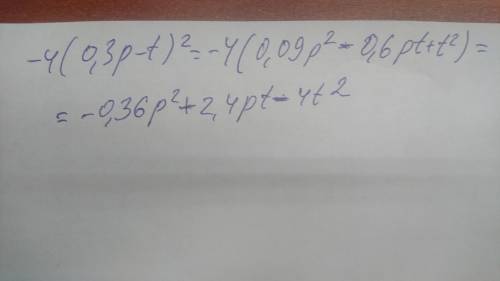 -4(0,3p-t)²=-4(0,09p²-0,6pt+t²)=
=-0,36p²+2,4pt-4t²